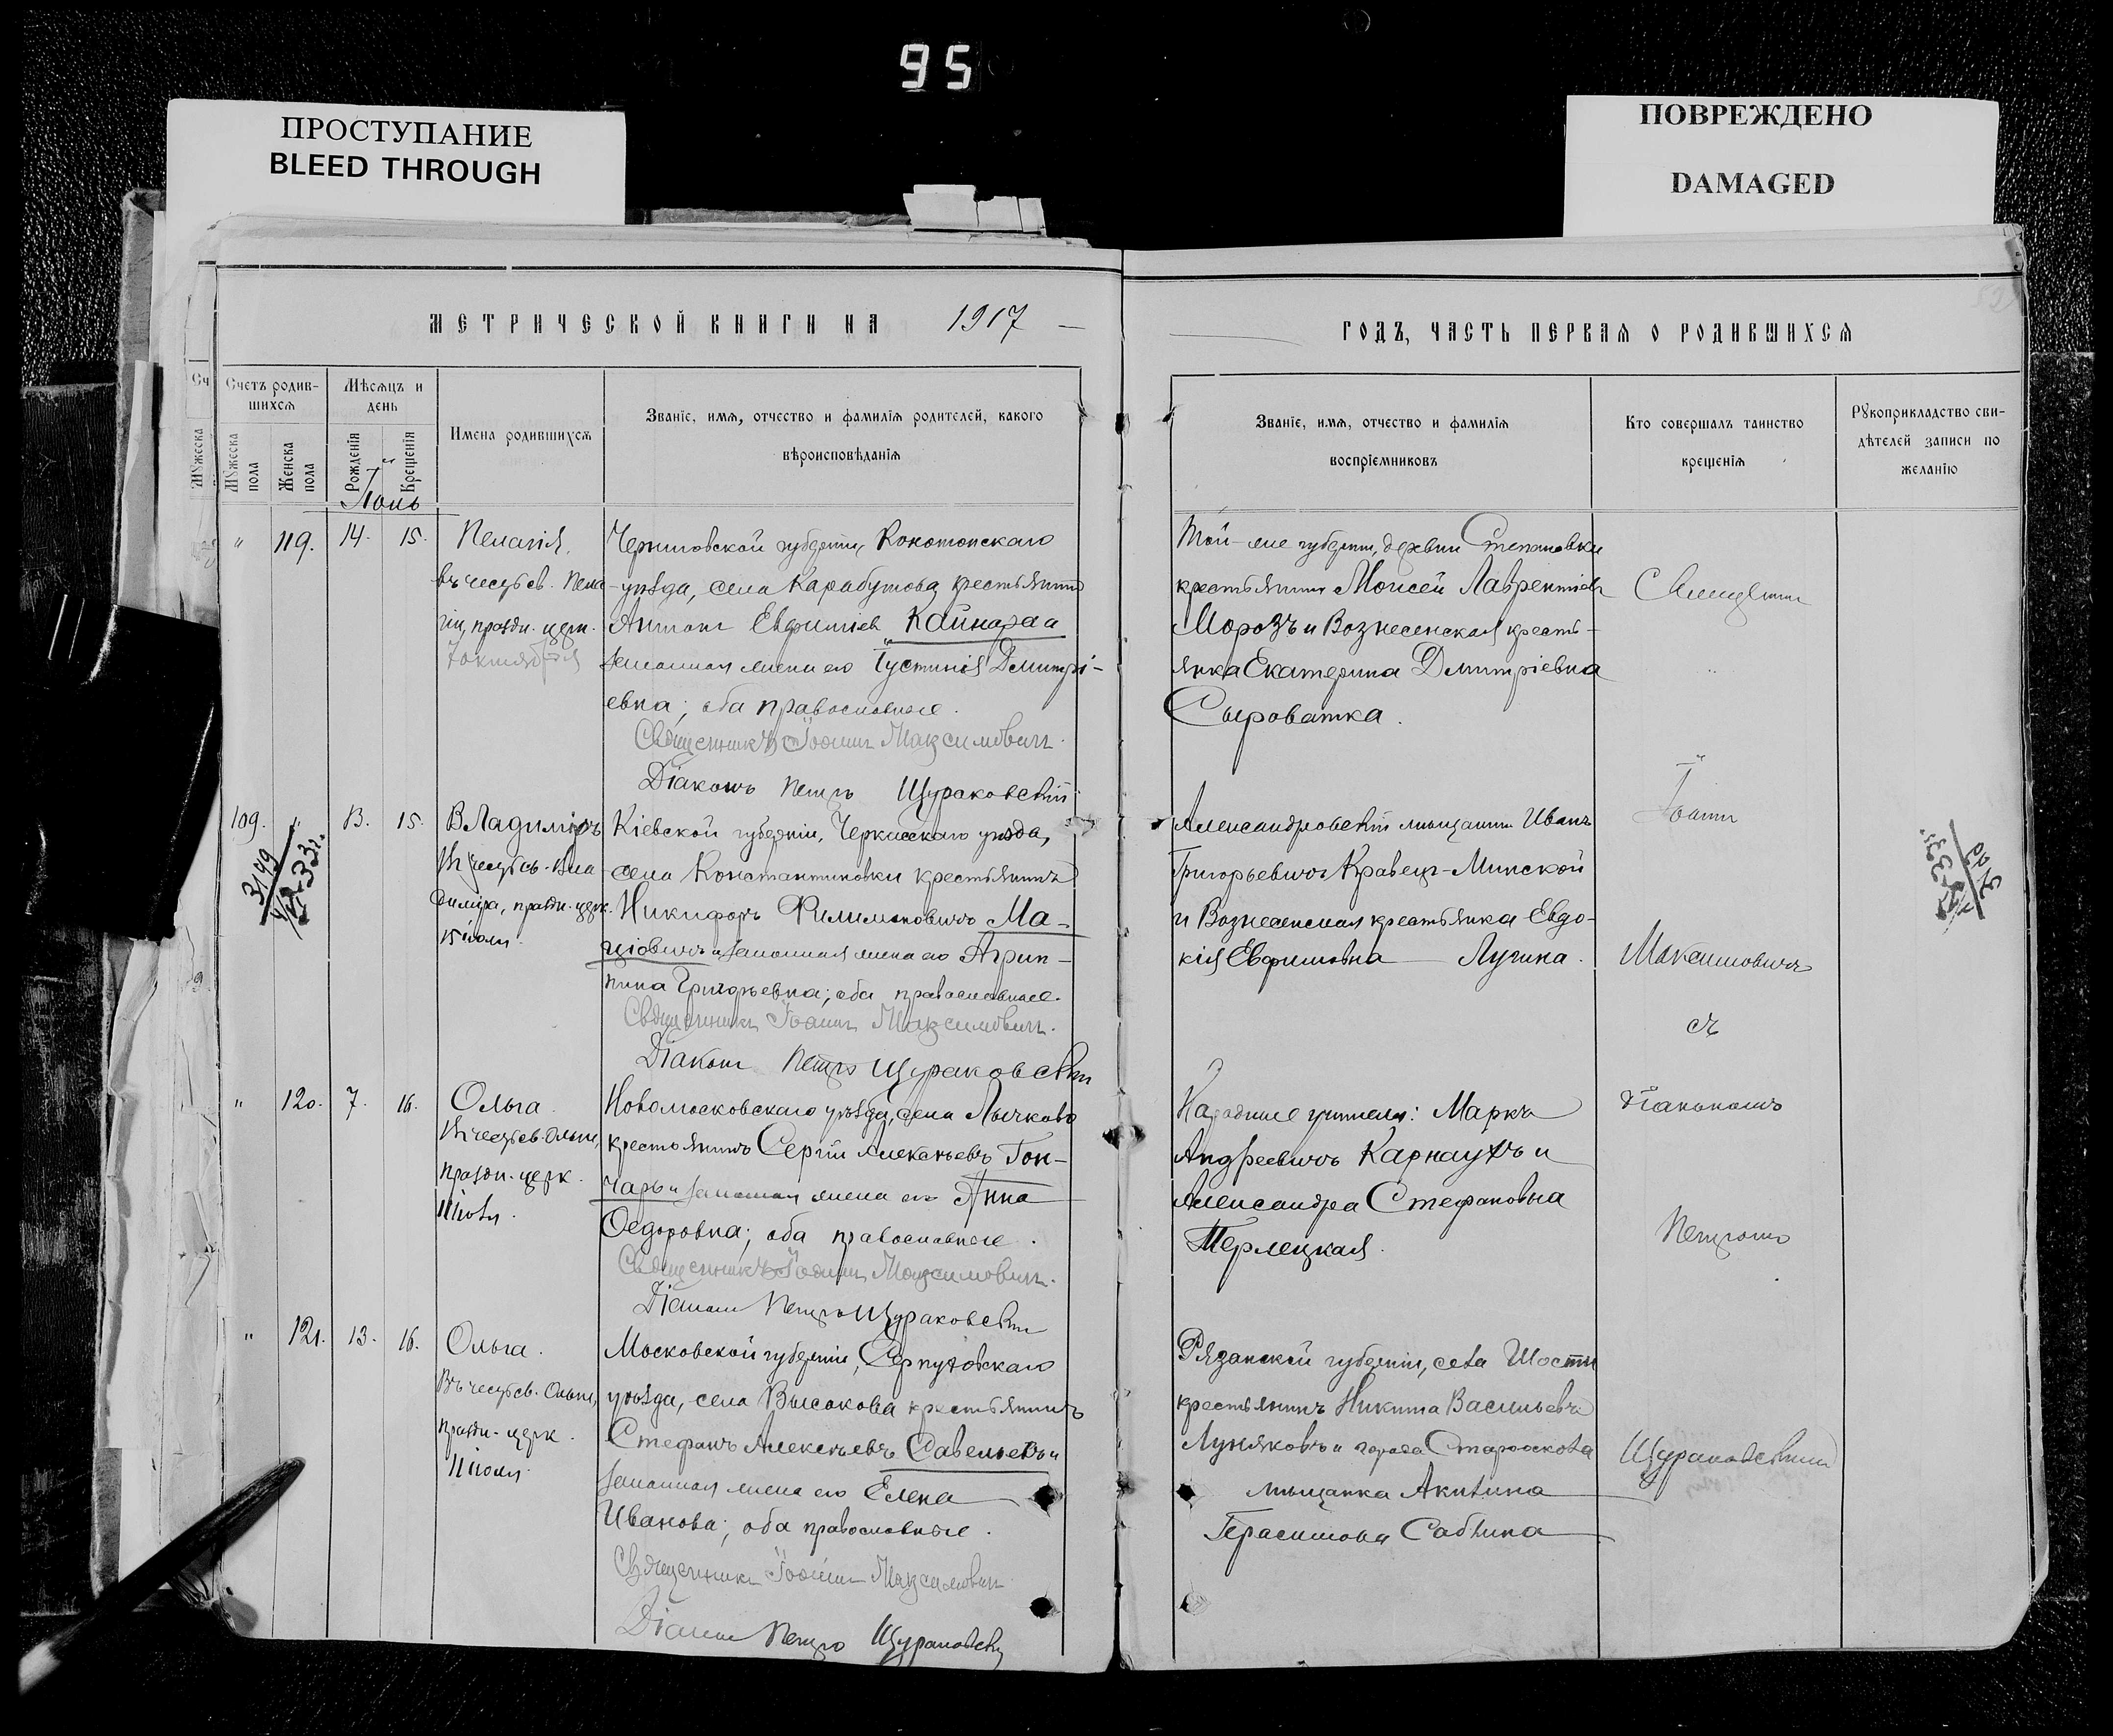 95
ПРОСТУПАНИЕ
BLEED THROUGH
ПОВРЕЖДЕНО
DAMAGED
МЕТРИЧЕСКОЙ КНИГИ НА 1917
ГОДЪ, ЧАСТЬ ПЕРВАЯ О РОДИВШИХСЯ
Сч
Мужеска
Счетъ родив-
шихся
Мужеска
пола
Женска
пола
Мѣсяцъ и
день
Рожденія
Крещенія
Имена родившихся
Званіе, имя, отчество и фамилія родителей, какого
вѣроисповѣданія
Званіе, имя, отчество и фамилія
воспріемниковъ
Кто совершалъ таинство
крещенія
Рукоприкладство сви-
дѣтелей записи по
желанію
" 119. 14. 15.
Пелагія,
въ честь св. Пела-
гіи, праздн. церк.
7 октября
Черниговской губерніи, Конотопскаго
уѣзда, села Карабутова крестьянинъ
Антоній Евфиміев Кайнара а
законная жена его Іустинія Димитрі-
евна; оба православные.
Священникъ Іоаннъ Максимовичъ.
Діаконъ Петръ Щураковскій
Той-же губерніи, деревни Степановки
крестьянинъ Моисей Лаврентіев
Морозъ и Вознесенская кресть-
янка Екатерина Димитріевна
Сыроватка.
Священникъ
109. " 13. 15.
3149
Владиміръ
въ честь св. Вла-
диміра, праздн. церк.
15 іюля.
Кіевской губерніи, Черкасскаго уѣзда,
села Константиновки крестьянинъ
Никифоръ Филимоновичъ Ма-
ціовичъ и законная жена его Агрип-
пина Григорьевна; оба православные.
Священникъ Іоаннъ Максимовичъ.
Діаконъ Петръ Щураковскій
Александровскій мѣщанинъ Иванъ
Григорьевичъ Кравецъ-Минской
и Вознесенская крестьянка Евдо-
кія Евфимовна Лугина.
Іоаннъ
Максимовичъ
съ
" 120. 7. 16.
Ольга.
въ честь св. Ольги,
праздн. церк.
11 іюля.
Новомосковскаго уѣзда, села Лычково
крестьянинъ Сергій Алексѣевъ Гон-
чаръ и законная жена его Анна
Ѳедоровна; оба православные.
Священникъ Іоаннъ Максимовичъ.
Діаконъ Петръ Щураковскій
Народные учителя: Маркъ
Андреевичъ Карнаухъ и
Александра Стефановна
Терлецкая.
діакономъ
Петромъ
" 121. 13. 16.
Ольга.
Въ честь св. Ольги,
праздн. церк.
11 іюля.
Московской губерніи, Серпуховскаго
уѣзда, села Высокова крестьянинъ
Стефанъ Алексѣевъ Савельевъ и
законная жена его Елена
Иванова; оба православные.
Священникъ Іоаннъ Максимовичъ
Діаконъ Петръ Щураковскій
Рязанской губерніи, села
крестьянинъ Никита Васильевъ
Луняковъ и города
мѣщанка Акилина
Герасимова
Щураковскимъ